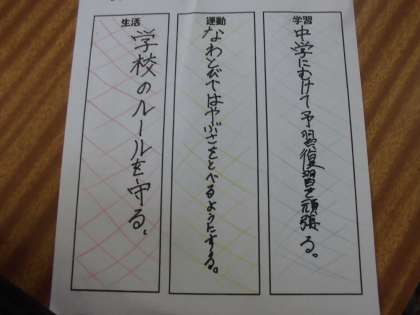 学習
中学にむけて予習復習を頑張る。
運動
なわとびではやぶさをとべるようにする。
生活
学校のルールを守る。